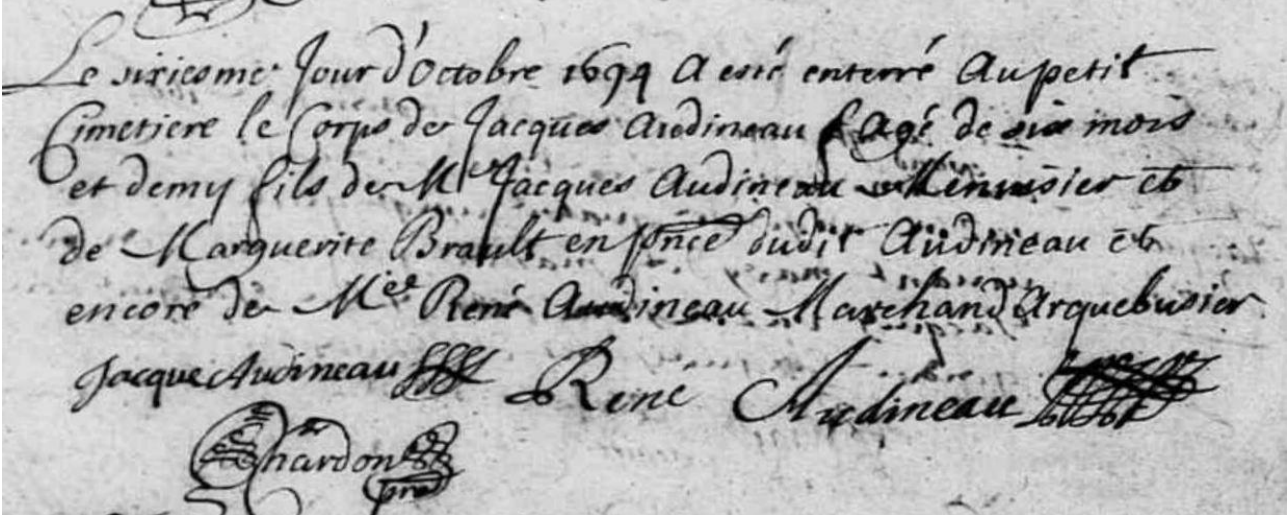 Le sixiesme Jour d'Octobre 1694 A esté enterré Au petit
Cimetiere le Corps de Jacques Audineau Agé de six mois
et demy fils de Mre Jacques Audineau Menuisier et
de Marguerite Brault en pnce dudit Audineau et
encore de Mre René Audineau Marchand Arquebusier
Jacque Audineau René Audineau
Chardon
pre